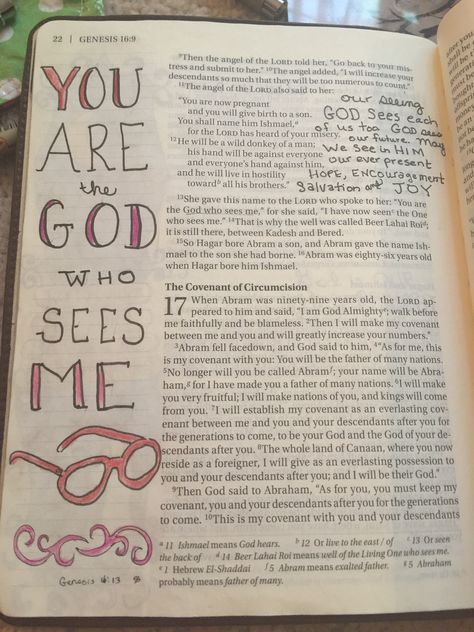 22 | GENESIS 16:9
YOU
ARE
the
GOD
WHO
SEES
ME
Genesis 16:13
⁹Then the angel of the LORD told her, "Go back to your mis-
tress and submit to her." ¹⁰The angel added, "I will increase your
descendants so much that they will be too numerous to count."
¹¹The angel of the LORD also said to her:
"You are now pregnant
and you will give birth to a son.
You shall name him Ishmael,ᵃ
for the LORD has heard of your misery.
¹²He will be a wild donkey of a man;
his hand will be against everyone
and everyone's hand against him,
and he will live in hostility
towardᵇ all his brothers."
our seeing
GOD sees each
of us too GOD sees
our future. May
we see in HIM
our ever present
HOPE, ENCOURAGEMENT
Salvation and JOY
¹³She gave this name to the LORD who spoke to her: "You are
the God who sees me," for she said, "I have now seenᶜ the One
who sees me." ¹⁴That is why the well was called Beer Lahai Roiᵈ;
it is still there, between Kadesh and Bered.
¹⁵So Hagar bore Abram a son, and Abram gave the name Ish-
mael to the son she had borne. ¹⁶Abram was eighty-six years old
when Hagar bore him Ishmael.
The Covenant of Circumcision
17 When Abram was ninety-nine years old, the LORD ap-
peared to him and said, "I am God Almightyᵉ; walk before
me faithfully and be blameless. ²Then I will make my covenant
between me and you and will greatly increase your numbers."
³Abram fell facedown, and God said to him, ⁴"As for me, this
is my covenant with you: You will be the father of many nations.
⁵No longer will you be called Abramᶠ; your name will be Abra-
ham,ᵍ for I have made you a father of many nations. ⁶I will make
you very fruitful; I will make nations of you, and kings will come
from you. ⁷I will establish my covenant as an everlasting cov-
enant between me and you and your descendants after you for
the generations to come, to be your God and the God of your de-
scendants after you. ⁸The whole land of Canaan, where you now
reside as a foreigner, I will give as an everlasting possession to
you and your descendants after you; and I will be their God."
⁹Then God said to Abraham, "As for you, you must keep my
covenant, you and your descendants after you for the generations
to come. ¹⁰This is my covenant with you and your descendants
ᵃ 11 Ishmael means God hears. ᵇ 12 Or live to the east / of ᶜ 13 Or seen
the back of ᵈ 14 Beer Lahai Roi means well of the Living One who sees me.
ᵉ 1 Hebrew El-Shaddai ᶠ 5 Abram means exalted father. ᵍ 5 Abraham
probably means father of many.